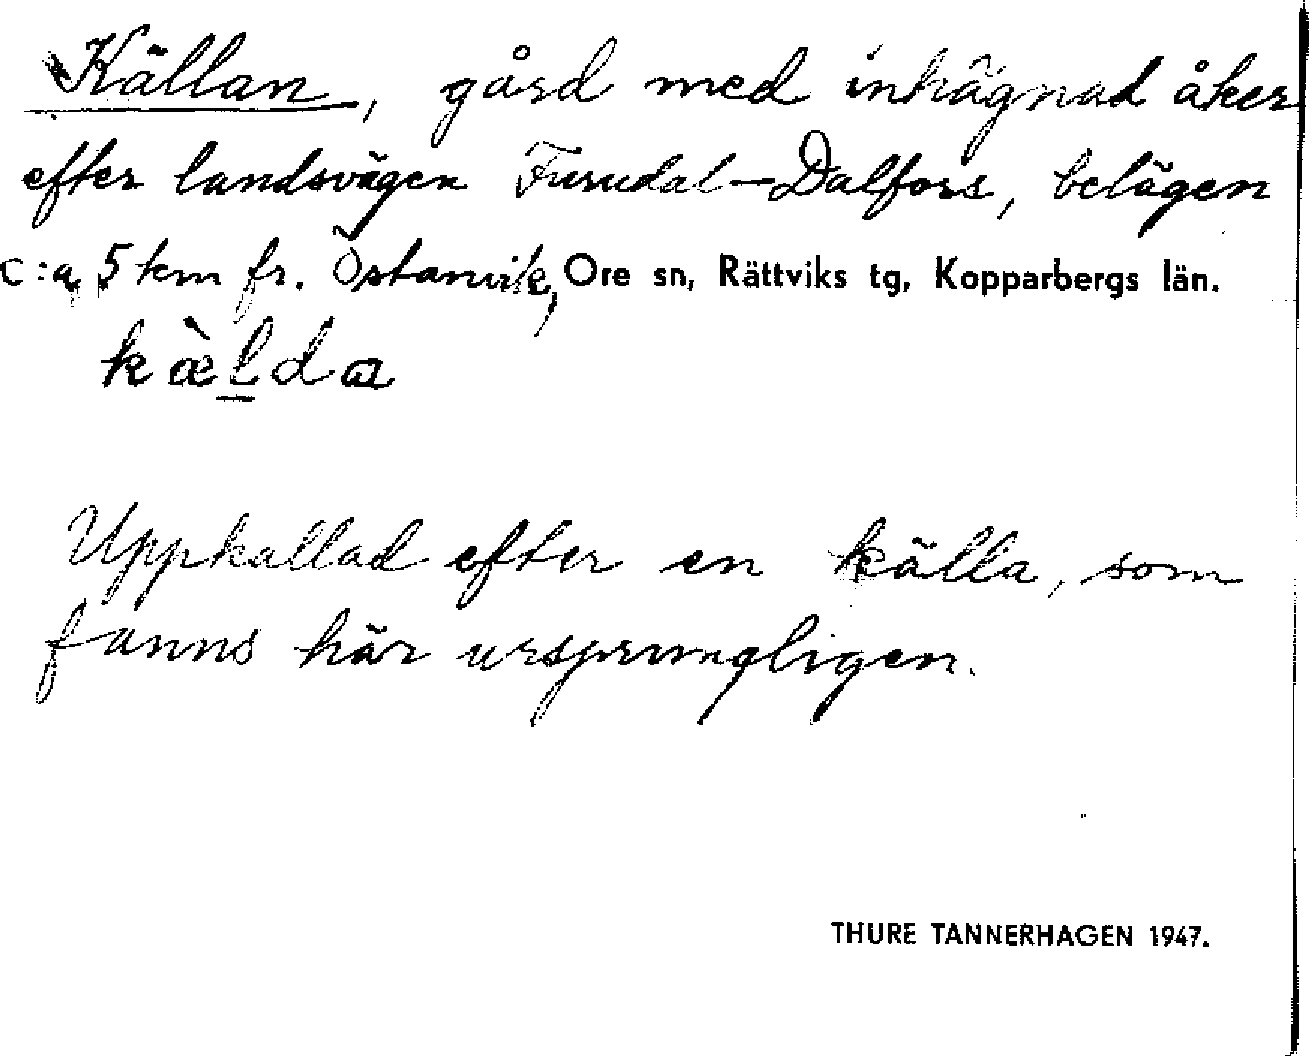 Källan, gård med inhägnad åker
efter landsvägen Furudal–Dalfors, belägen
c:a 5 km fr. Östanvik, Ore sn, Rättviks tg, Kopparbergs län.
kæ̀l̲da
Uppkallad efter en källa, som
fanns här ursprungligen.
THURE TANNERHAGEN 1947.